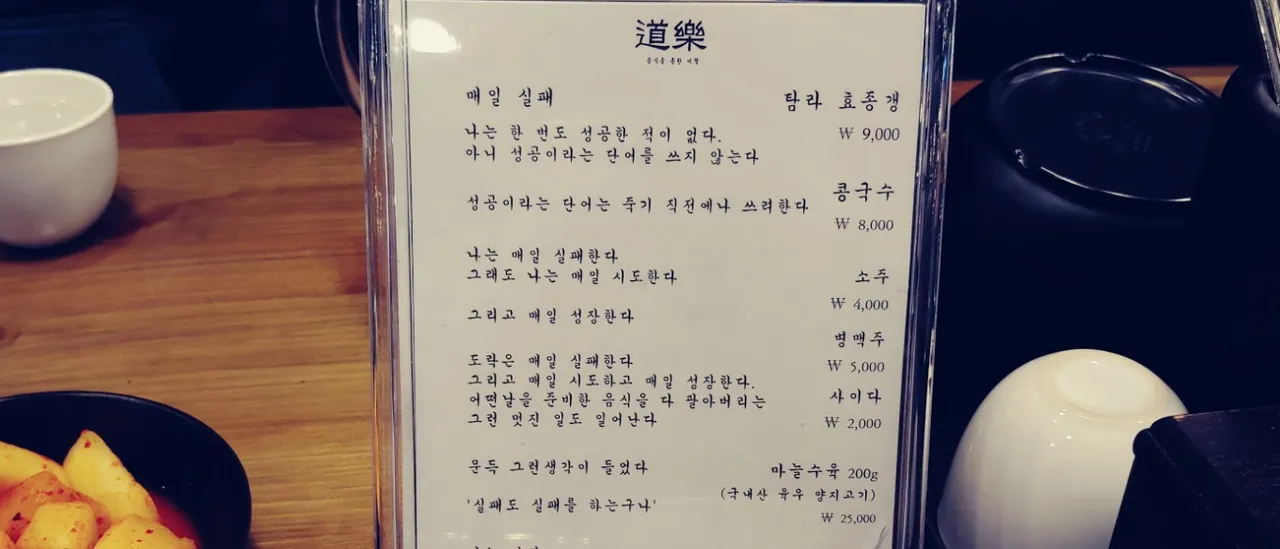 道樂
음식을 통한 여행
매일 실패
나는 한 번도 성공한 적이 없다.
아니 성공이라는 단어를 쓰지 않는다
성공이라는 단어는 죽기 직전에나 쓰려한다
나는 매일 실패한다
그래도 나는 매일 시도한다
그리고 매일 성장한다
도락은 매일 실패한다
그리고 매일 시도하고 매일 성장한다.
어떤날을 준비한 음식을 다 팔아버리는
그런 멋진 일도 일어난다
문득 그런생각이 들었다
'실패도 실패를 하는구나'
탐라 효종갱
₩ 9,000
콩국수
₩ 8,000
소주
₩ 4,000
병맥주
₩ 5,000
사이다
₩ 2,000
마늘수육 200g
(국내산 육우 양지고기)
₩ 25,000